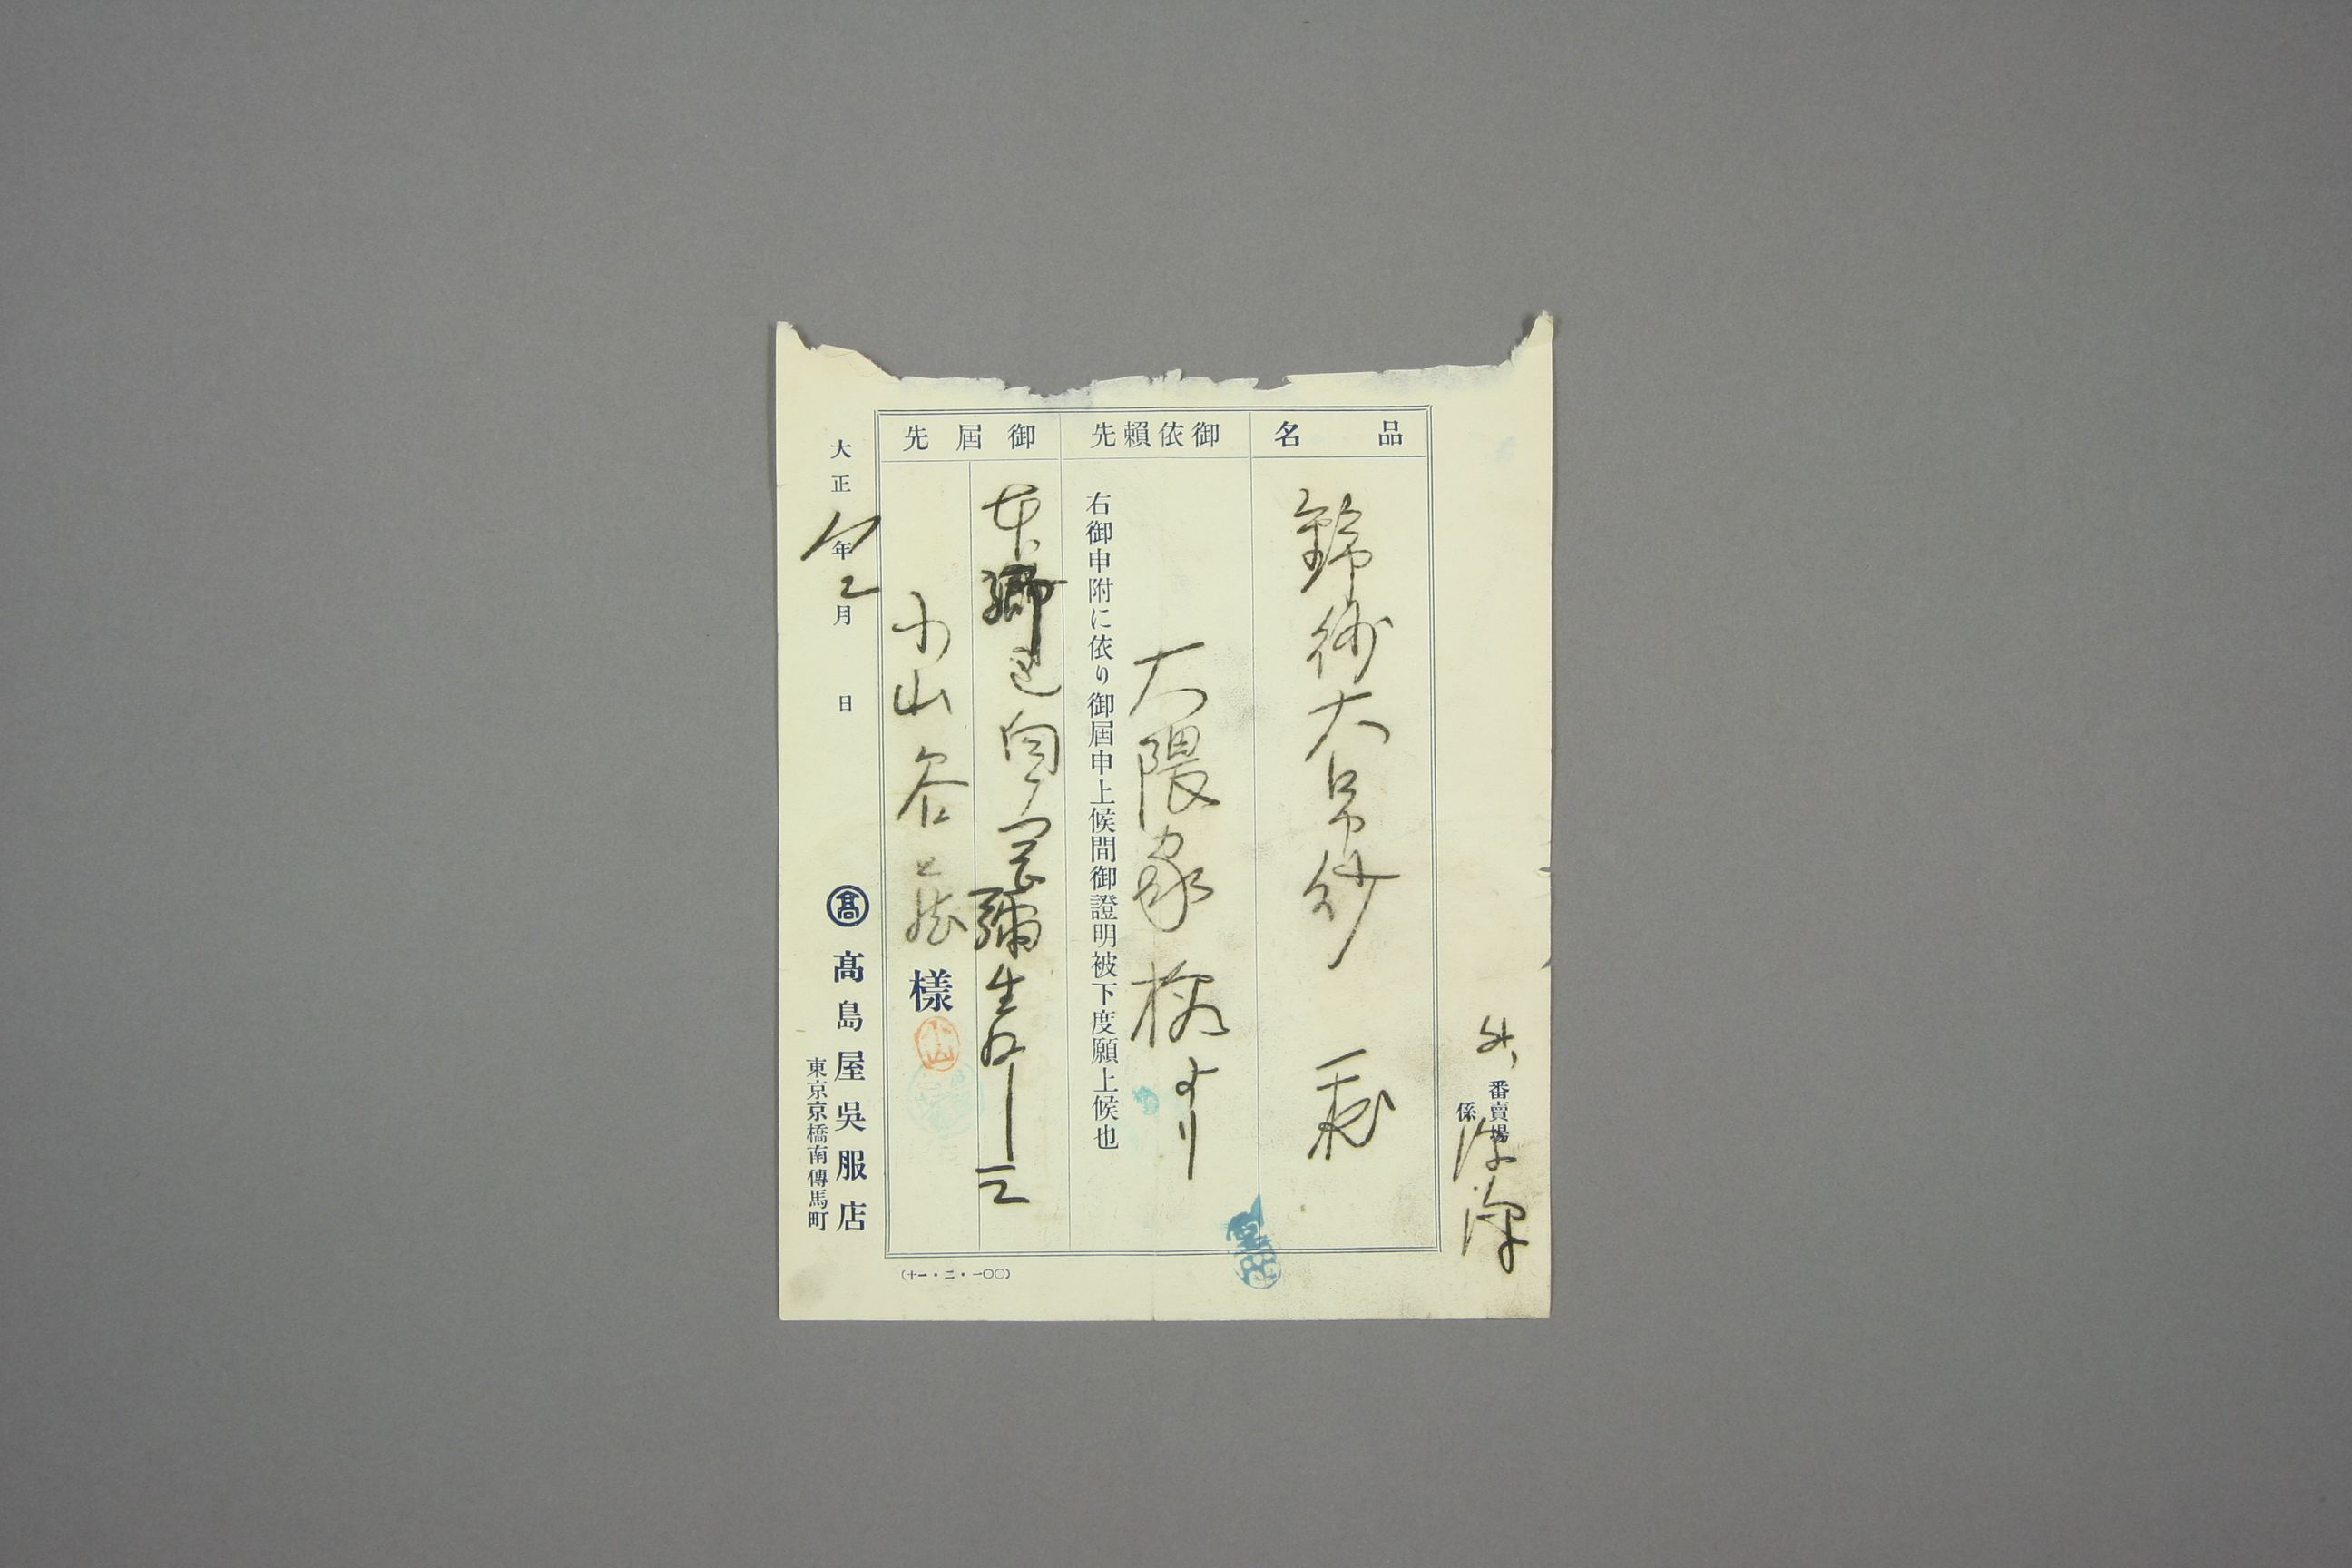 外
番賣場
係
品名
錦紗大帛紗
御依賴先
大隈家様より
右御申附に依り御屆申上候間御證明被下度願上候也
御屆先
本郷區向ヶ岡彌生町一ノ三
小山谷藏
様
小山
大正 年 月 日
髙
髙島屋吳服店
東京京橋南傳馬町
(十一・二・一〇〇)